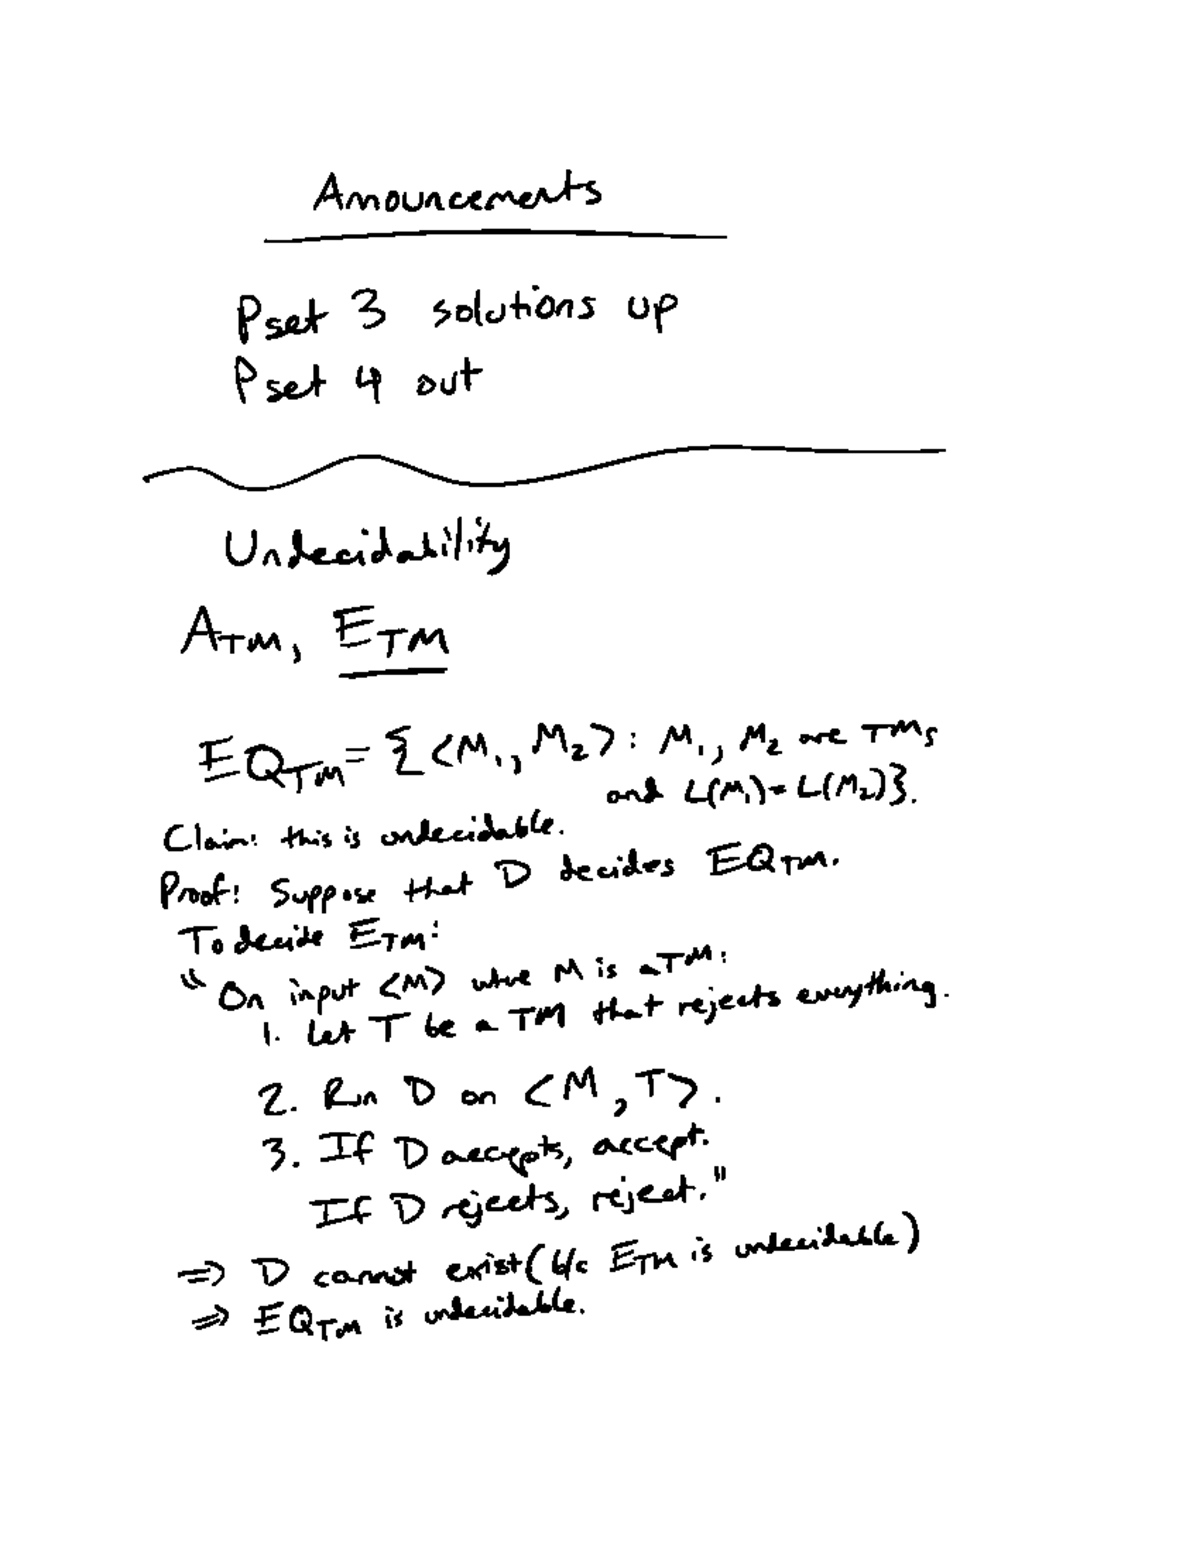 Anouncements
Pset 3 solutions up
Pset 4 out
Undecidability
A_TM, E_TM
EQ_TM = {<M₁, M₂> : M₁, M₂ are TMs
and L(M₁) = L(M₂)}.
Claim: this is undecidable.
Proof: Suppose that D decides EQ_TM.
To decide E_TM:
"On input <M> where M is a TM:
1. Let T be a TM that rejects everything.
2. Run D on <M, T>.
3. If D accepts, accept.
If D rejects, reject."
⇒ D cannot exist (b/c E_TM is undecidable)
⇒ EQ_TM is undecidable.